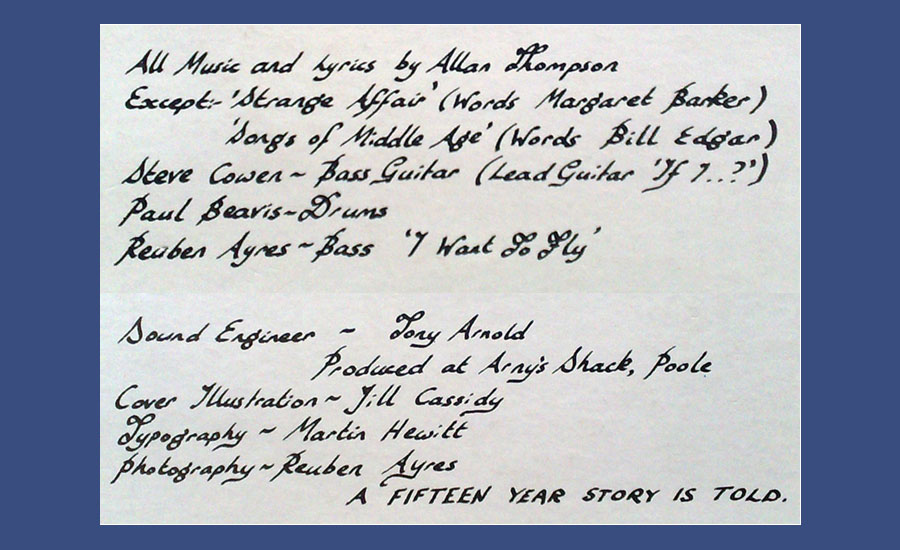 All Music and Lyrics by Allan Thompson
Except:- 'Strange Affair' (Words Margaret Barker)
'Songs of Middle Age' (Words Bill Edgar)
Steve Cowen ~ Bass Guitar (Lead Guitar 'If I..?')
Paul Beavis ~ Drums
Reuben Ayres ~ Bass 'I Want To Fly'
Sound Engineer ~ Tony Arnold
Produced at Arny's Shack, Poole
Cover Illustration ~ Jill Cassidy
Typography ~ Martin Hewitt
Photography ~ Reuben Ayres
A FIFTEEN YEAR STORY IS TOLD.